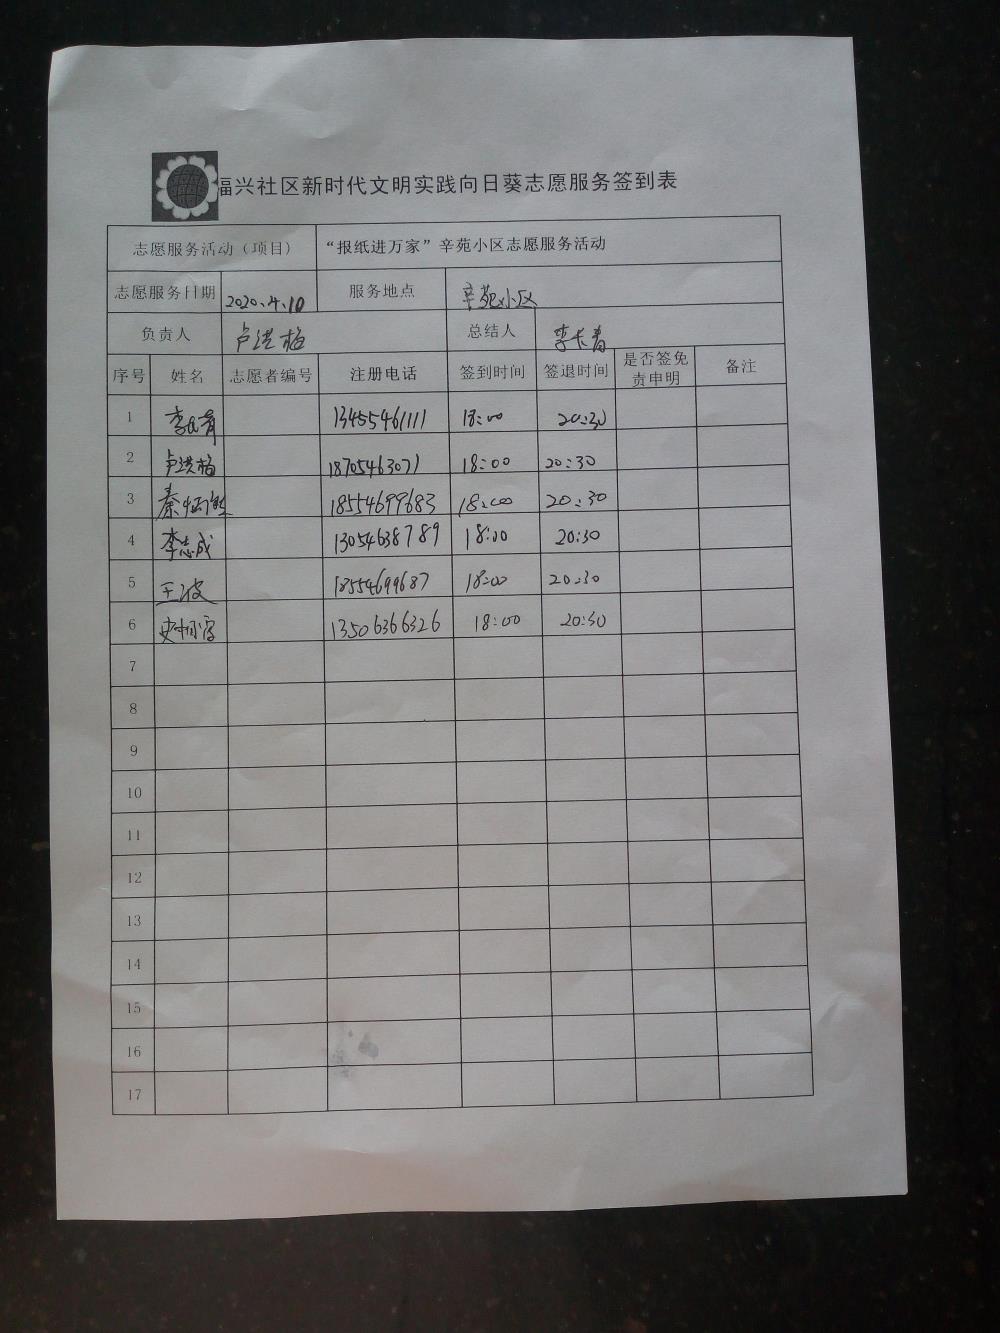 福兴社区新时代文明实践向日葵志愿服务签到表
志愿服务活动（项目） “报纸进万家”辛苑小区志愿服务活动
志愿服务日期 2020.4.10 服务地点 辛苑小区
负责人 卢洪梅 总结人 李长青
序号 姓名 志愿者编号 注册电话 签到时间 签退时间 是否签免责申明 备注
1 李长青 13455461111 18:00 20:30
2 卢洪梅 18705463071 18:00 20:30
3 秦 18554699683 18:00 20:30
4 李志成 13054638789 18:00 20:30
5 王波 18554699687 18:00 20:30
6 史 13506366326 18:00 20:30
7
8
9
10
11
12
13
14
15
16
17